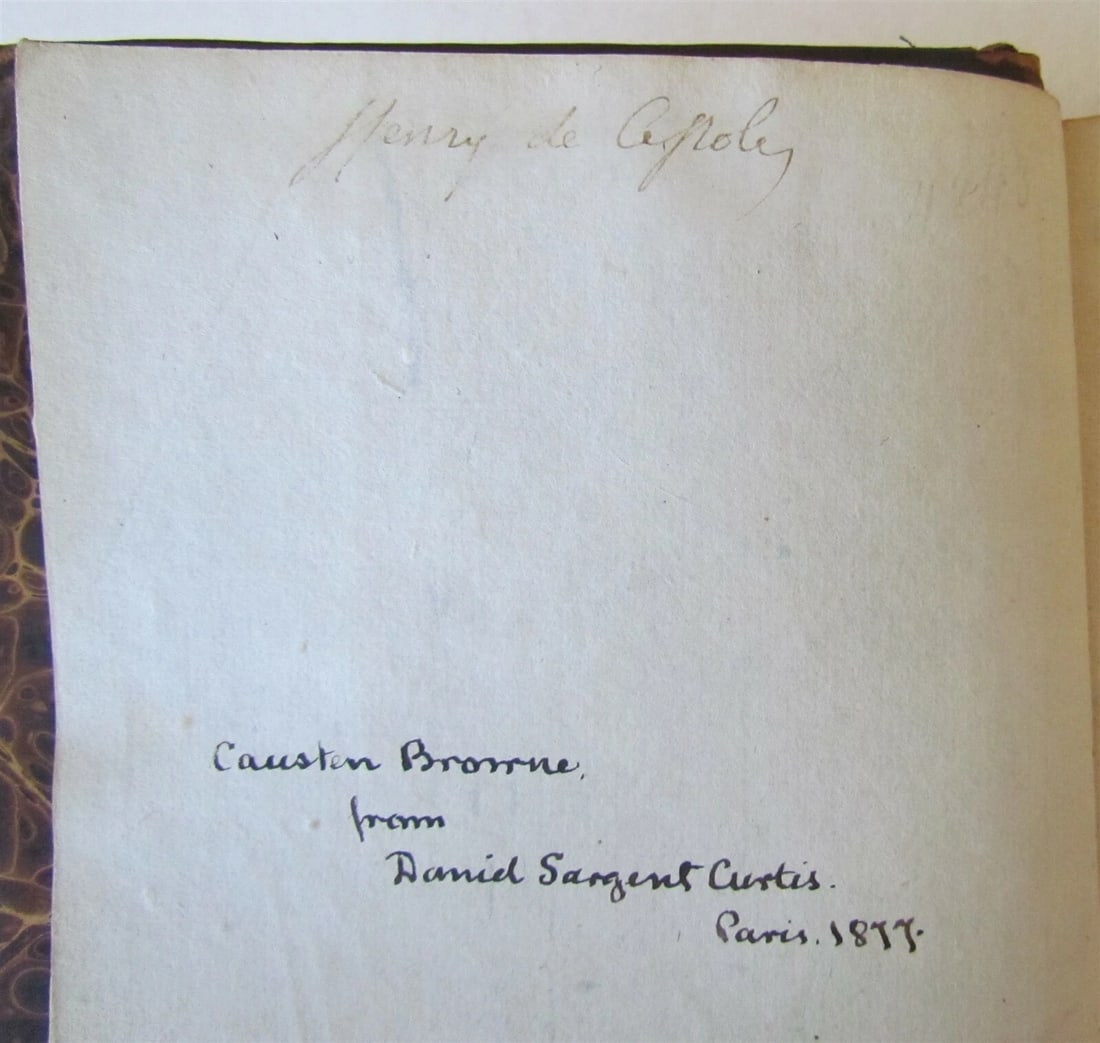 Henry de
Causten Browne,
from
Daniel Sargent Curtis.
Paris. 1877.